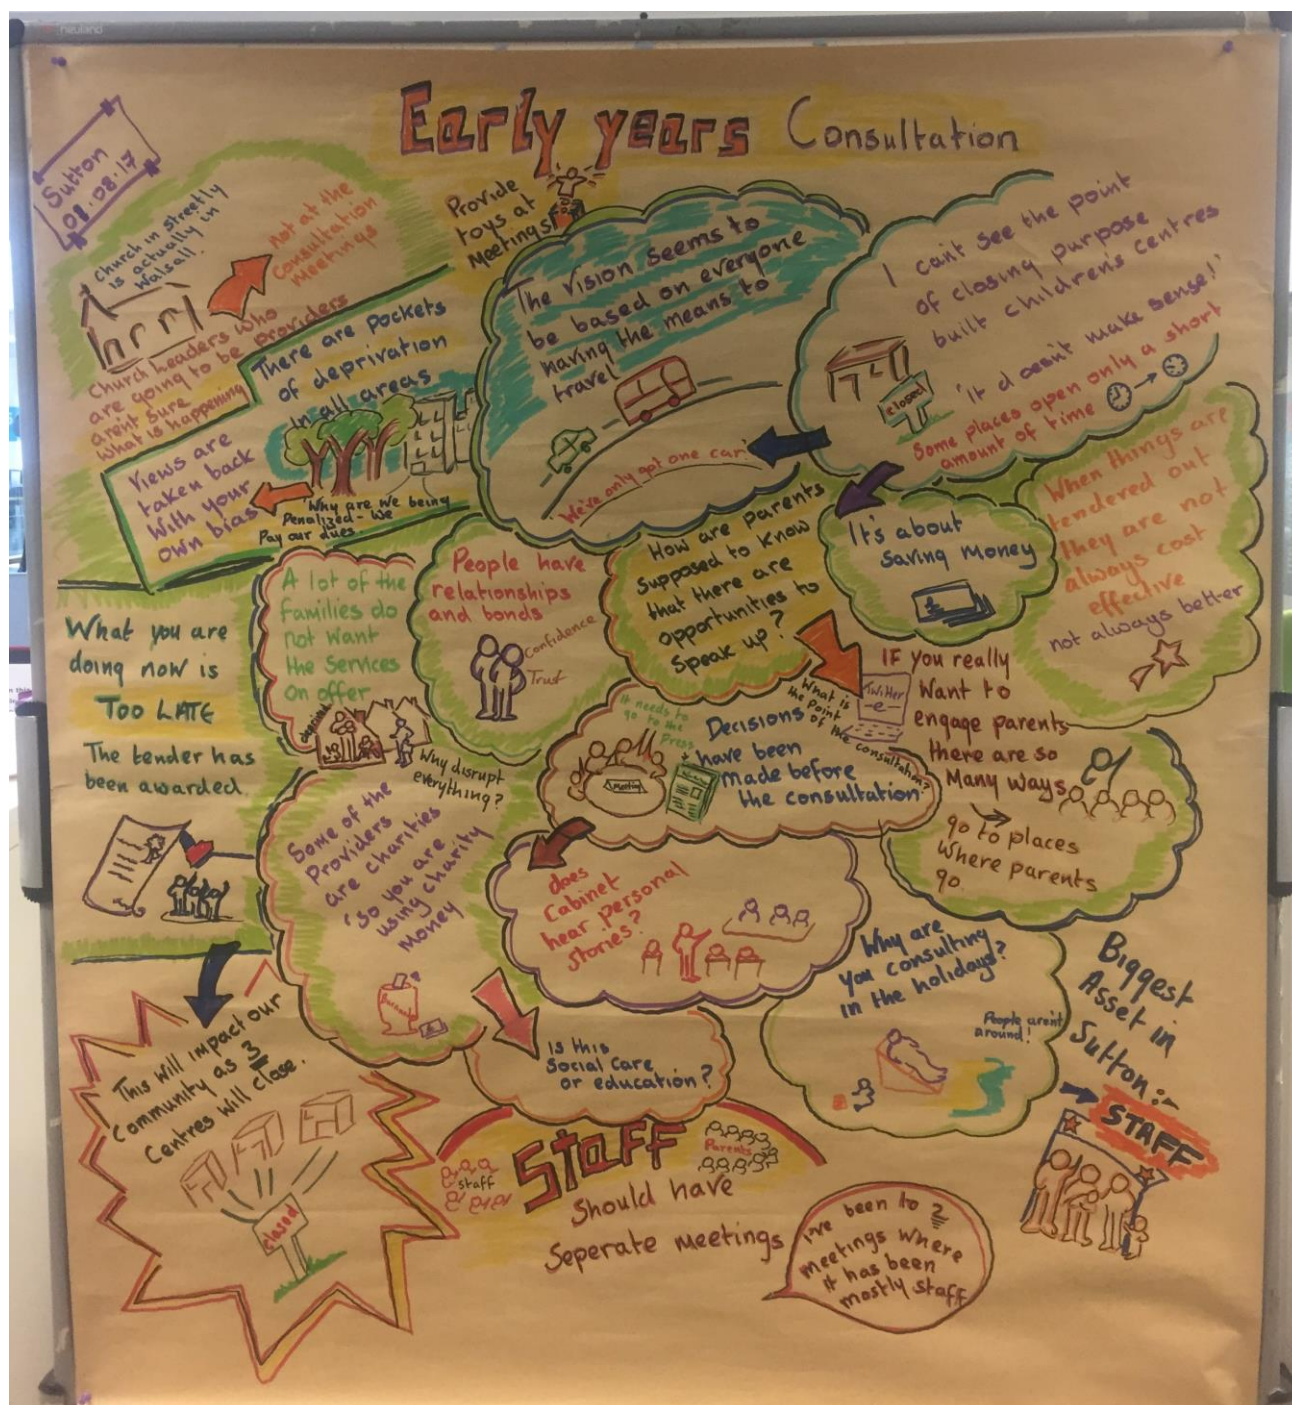 neuland
Early years Consultation
Sutton
01.08.17
Church in streetly
is actually in
Walsall.
Not at the
Consultation
Meetings
Church Leaders who
are going to be providers
arent sure
what is happening
Provide
toys at
Meetings
There are pockets
of deprivation
in all areas
Views are
taken back
With your
own bias
"Why are we being
Penalized - We
Pay our dues.
The vision seems to
be based on everyone
having the means to
travel
We've only got one car
I can't see the point
of closing purpose
built children's centres
'it doesn't make sense!'
closed
Some places open only a short
amount of time
When things are
tendered out
they are not
always cost
effective
not always better
It's about
Saving Money
£
How are parents
supposed to know
that there are
opportunities to
Speak up?
People have
relationships
and bonds
Confidence
Trust
A lot of the
families do
not want
the services
on offer
Why disrupt
everything?
What you are
doing now is
TOO LATE
The tender has
been awarded.
IF you really
Want to
engage parents
there are so
Many ways
go to places
Where parents
go.
Twitter
What is
the point
of
the consultation?
It needs to
go to the
Press
Meeting
Decisions
have been
made before
the consultation
Some of the
Providers
are charities
'so you are
using charity
Money
does
Cabinet
hear personal
stories?
Why are
you consulting
in the holidays?
People aren't
around!
Biggest
Asset in
Sutton:-
STAFF
This will impact our
Community as 3
Centres will close.
closed
Is this
Social Care
or education?
Staff
staff
Parents
Should have
Seperate meetings
I've been to 2
meetings where
it has been
mostly staff